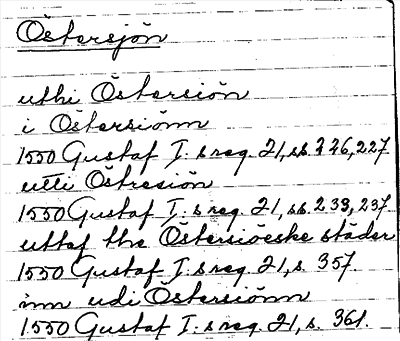 Östersjön
uthi Östersiön
i Östersiönn
1550 Gustaf I:s reg. 21, ss. 226, 227
utti Östresiön
1550 Gustaf I:s reg. 21, ss. 233, 237
uttaf the Östersiöeske städer
1550 Gustaf I:s reg. 21, s. 357.
inn udi Östersiönn
1550 Gustaf I:s reg. 21, s. 361.